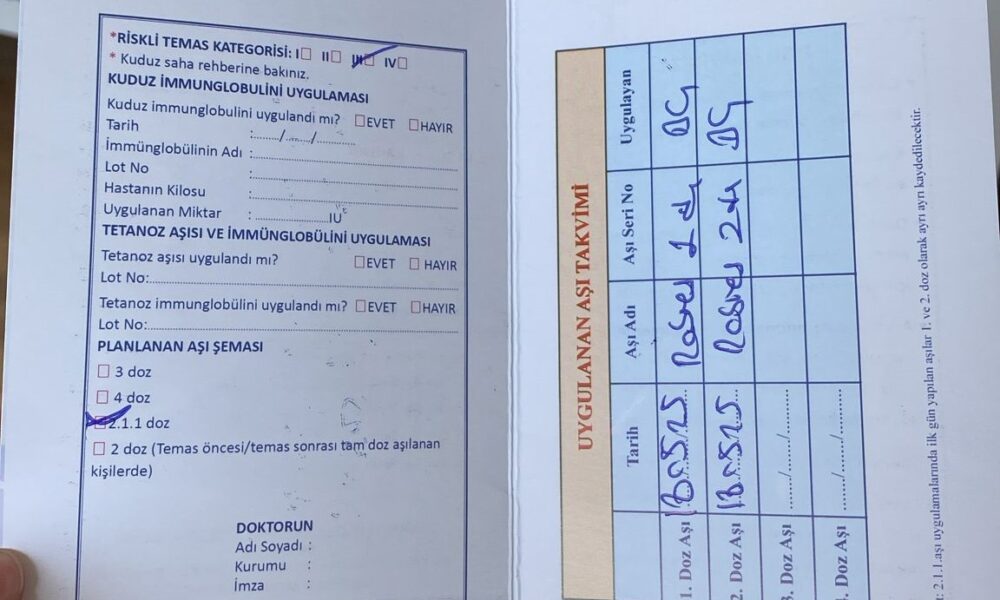 *RİSKLİ TEMAS KATEGORİSİ: I☐ II☐ III☐ IV☐
* Kuduz saha rehberine bakınız.
KUDUZ İMMUNGLOBULİNİ UYGULAMASI
Kuduz immunglobulini uygulandı mı? ☐EVET ☐HAYIR
Tarih :......../......../............
İmmünglobülinin Adı :
Lot No :
Hastanın Kilosu :
Uygulanan Miktar : ....................IU
TETANOZ AŞISI VE İMMÜNGLOBÜLİNİ UYGULAMASI
Tetanoz aşısı uygulandı mı? ☐EVET ☐ HAYIR
Lot No:
Tetanoz immunglobülini uygulandı mı? ☐EVET ☐HAYIR
Lot No:
PLANLANAN AŞI ŞEMASI
☐ 3 doz
☐ 4 doz
☐ 2.1.1 doz
☐ 2 doz (Temas öncesi/temas sonrası tam doz aşılanan
kişilerde)
DOKTORUN
Adı Soyadı :
Kurumu :
İmza :
UYGULANAN AŞI TAKVİMİ
Tarih Aşı Adı Aşı Seri No Uygulayan
1. Doz Aşı
2. Doz Aşı
3. Doz Aşı ....../....../..........
. Doz Aşı ....../....../..........
: 2.1.1.aşı uygulamalarında ilk gün yapılan aşılar 1. ve 2. doz olarak ayrı ayrı kaydedilecektir.